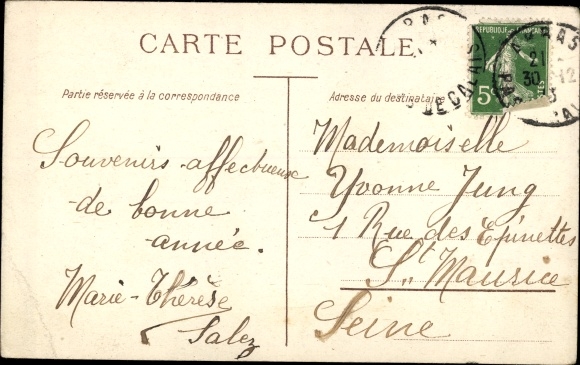 CARTE POSTALE
Partie réservée à la correspondance
Adresse du destinataire
REPUBLIQUE FRANÇAISE
5c
POSTES
ARRAS
21
30 -12
PAS DE CALAIS
Souvenirs affectueux
de bonne
année.
Marie-Thérèse
Salez
Mademoiselle
Yvonne Jung
1 Rue des Epinettes
St. Maurice
Seine